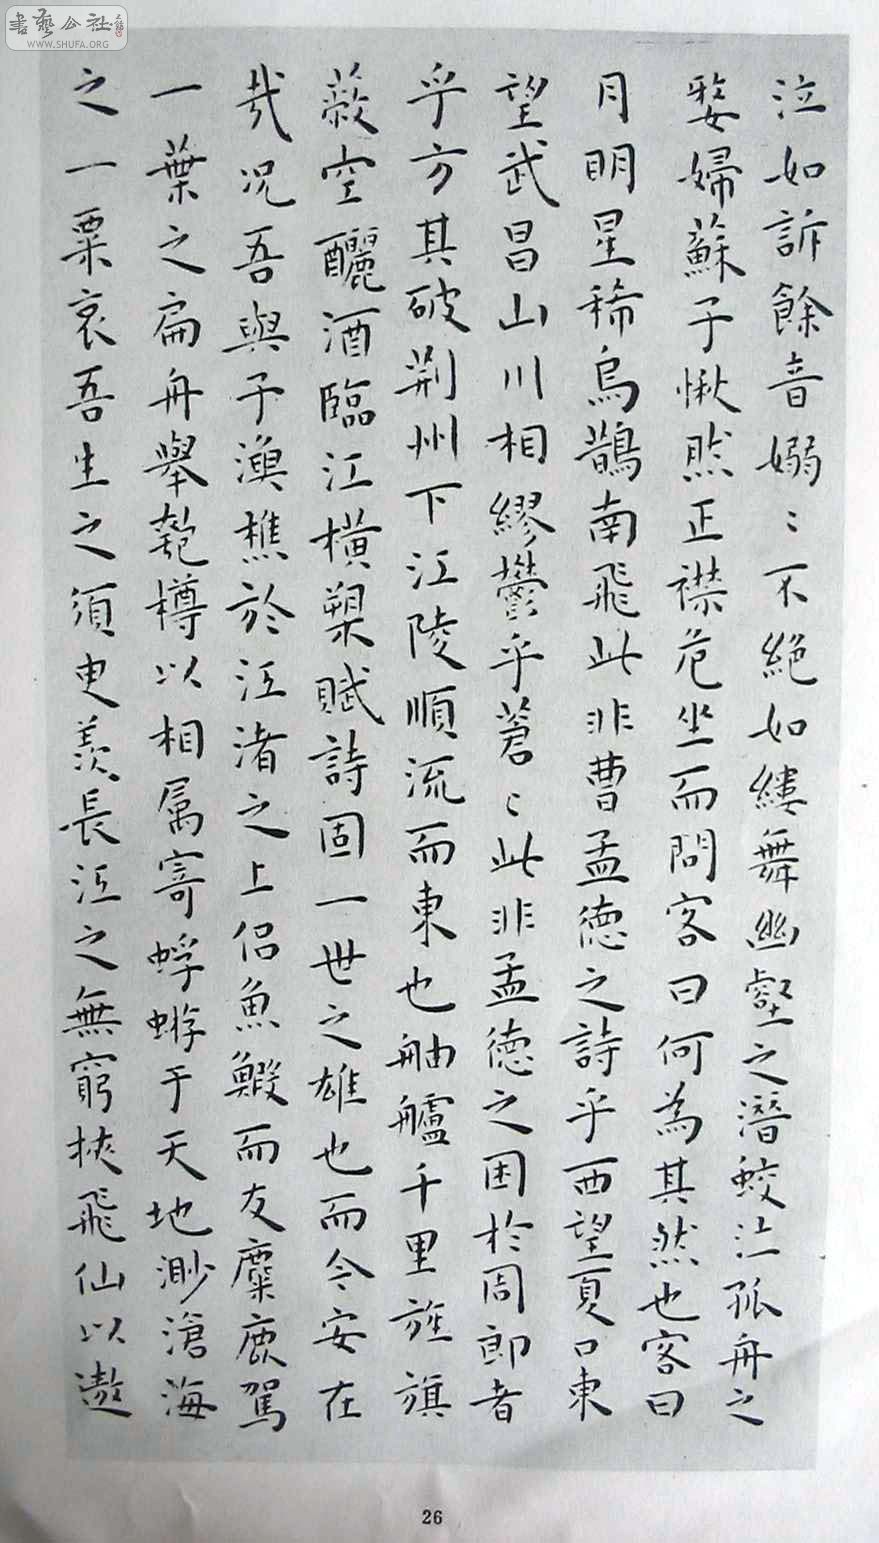 書藝公社
WWW.SHUFA.ORG
泣如訴餘音嫋〻不絕如縷舞幽壑之潛蛟泣孤舟之
嫠婦蘇子愀然正襟危坐而問客曰何為其然也客曰
月明星稀烏鵲南飛此非曹孟德之詩乎西望夏口東
望武昌山川相繆鬱乎蒼〻此非孟德之困於周郎者
乎方其破荆州下江陵順流而東也舳艫千里旌旗
蔽空釃酒臨江橫槊賦詩固一世之雄也而今安在
哉況吾與子漁樵於江渚之上侶魚鰕而友麋鹿駕
一葉之扁舟舉匏樽以相属寄蜉蝣于天地渺滄海
之一粟哀吾生之須臾羨長江之無窮挾飛仙以遨
26